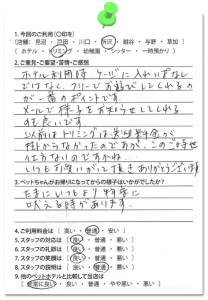 1.今回のご利用(〇印を)
[店舗: 見沼・戸田・川口・所沢・越谷・与野・草加]
(ホテル・トリミング・幼稚園・シッター・一時預かり)
2.ご意見・ご要望・苦情・ご感想
ホテル利用時 ケージに入れっぱなし
ではなく、フリーでお話ししてくれるの
が一番のポイントです。
メールで様子をお知らせしてくれる
のも良いです。
以前はトリミングは
掛からなかったのですが、このご時世
仕方ないのですかね…
いつもお世話になって頂きありがとうございます
3.ペットちゃんがお帰りになってからの様子はいかがでしたか?
たまにいつもより
吠える時があります。
4.ご利用料金は [ 高い・普通・安い ]
5.スタッフの対応は [ 良い・普通・悪い ]
6.スタッフの礼節は [ 良い・普通・悪い ]
7.スタッフの笑顔は [ 良い・普通・悪い ]
8.スタッフの説明は [ 良い・普通・悪い ]
9.他のペットホテルと比較して当店は
[ 非常に良い・良い・普通・やや悪い・悪い ]